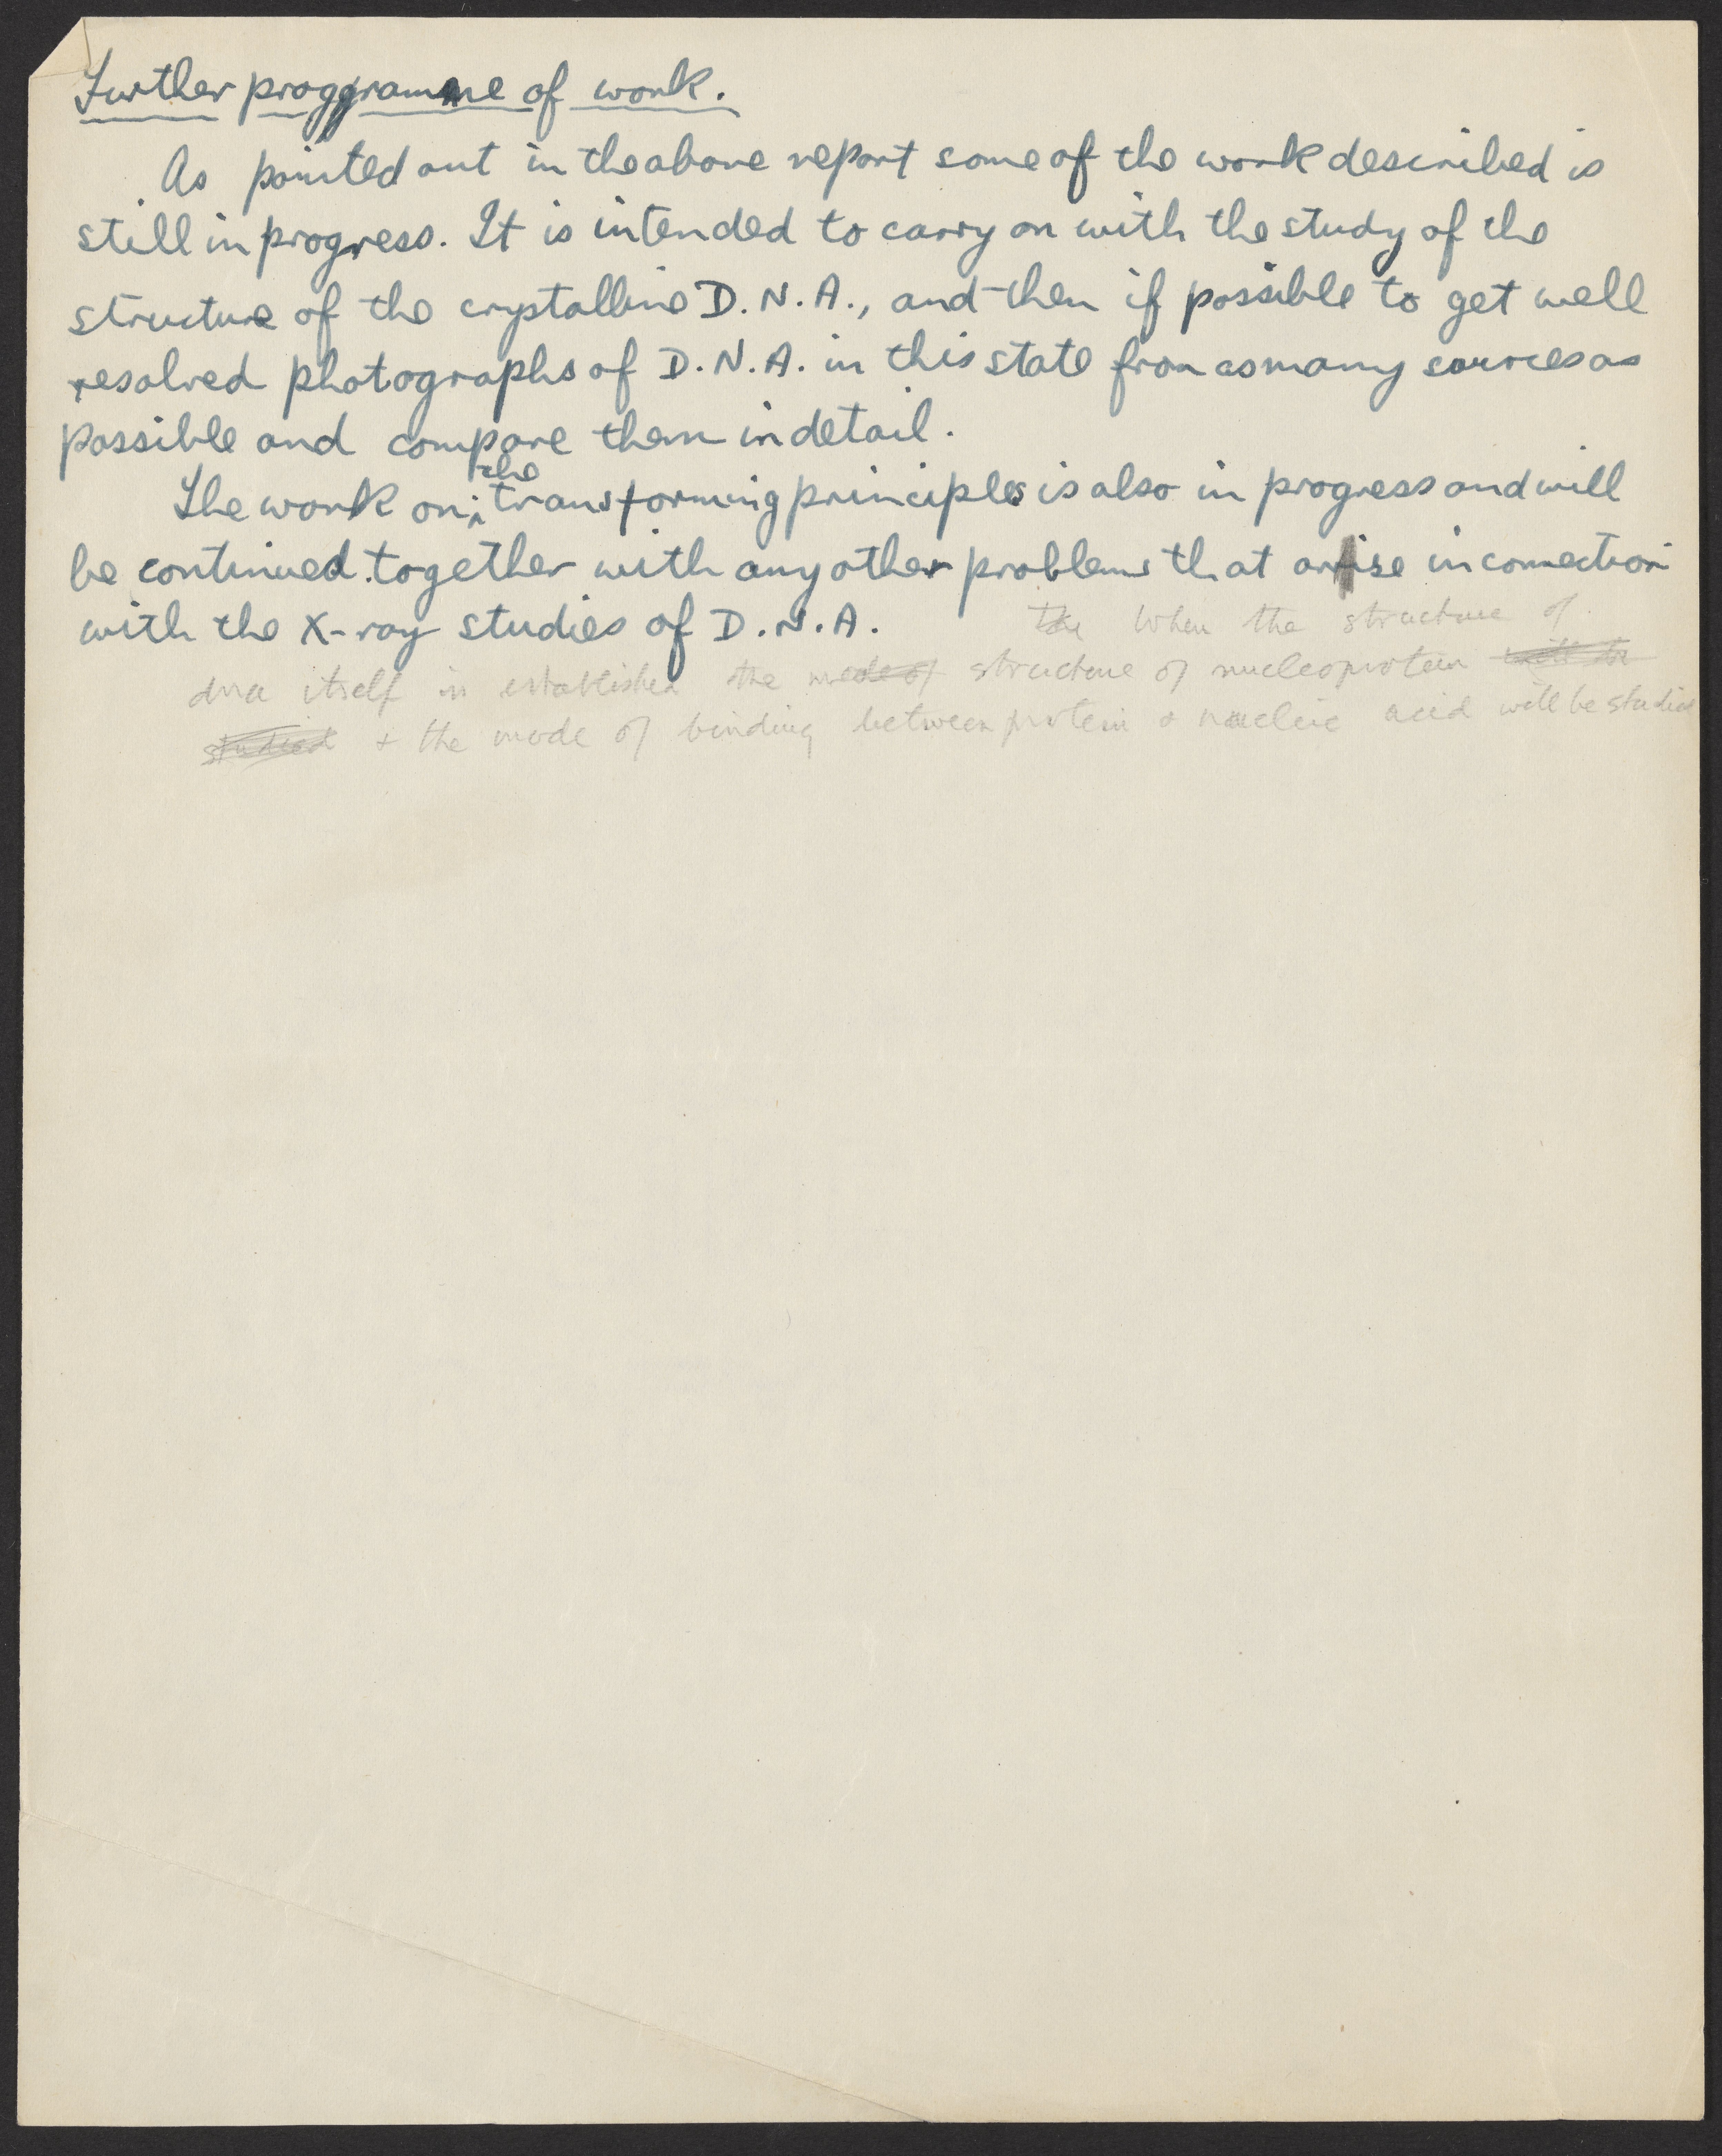 Further programme of work.
As pointed out in the above report some of the work described is
still in progress. It is intended to carry on with the study of the
structure of the crystalline D.N.A., and then if possible to get well
resolved photographs of D.N.A. in this state from as many sources as
possible and compare them in detail.
the
The work on transforming principles is also in progress and will
be continued together with any other problems that arise in connection
with the X-ray studies of D.N.A.
The When the structure of
dna itself is established the mode of structure of nucleoprotein will be
studied + the mode of binding between protein & nucleic acid will be studied